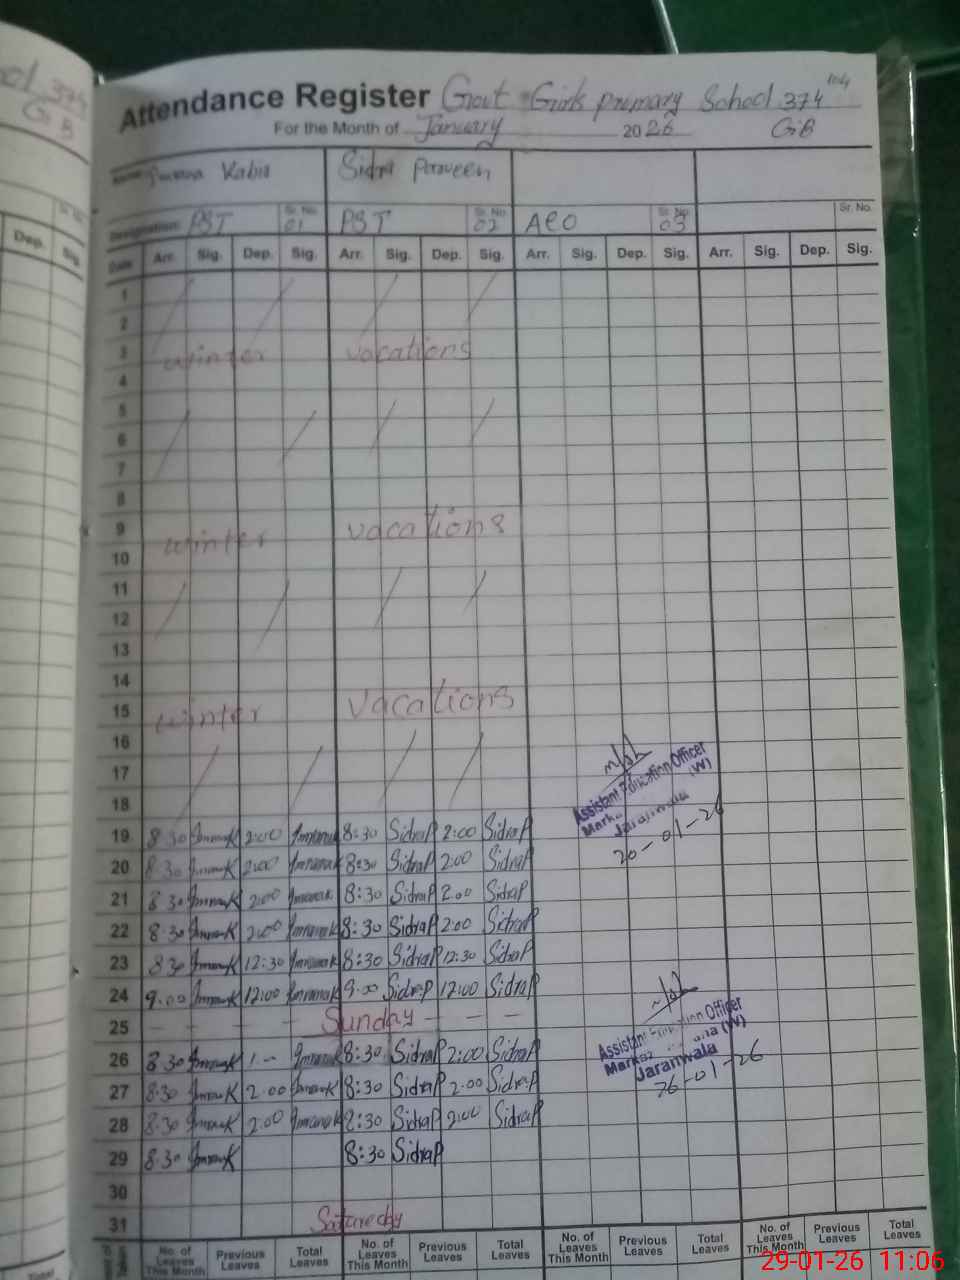 Attendance Register Govt Girls primary School 374 104
For the Month of January 2026 GB
Kabir Sidra Parveen
Designation PST Sr. No. 01 PST Sr. No. 02 AEO Sr. No. 03 Sr. No.
Date Arr. Sig. Dep. Sig. Arr. Sig. Dep. Sig. Arr. Sig. Dep. Sig. Arr. Sig. Dep. Sig.
1
2
3 winter vacations
4
5
6
7
8
9 winter vacations
10
11
12
13
14
15 winter vacations
16
17
18
Assistant Education Officer
(W)
Jaranwala
20-01-26
19 8:30 2:00 8:30 SidraP 2:00 SidraP
20 8:30 2:00 8:30 SidraP 2:00 SidraP
21 8:30 2:00 8:30 SidraP 2:00 SidraP
22 8:30 2:00 8:30 SidraP 2:00 SidraP
23 8:30 12:30 8:30 SidraP 12:30 SidraP
24 9:00 12:00 9:00 SidraP 12:00 SidraP
25 — — — — Sunday — — —
Assistant Education Officer
(W)
Jaranwala
26-01-26
26 8:30 1-- 8:30 SidraP 2:00 SidraP
27 8:30 2:00 8:30 SidraP 2:00 SidraP
28 8:30 2:00 8:30 SidraP 2:00 SidraP
29 8:30 8:30 SidraP
30
31 Satureday
No. of Leaves This Month Previous Leaves Total Leaves No. of Leaves This Month Previous Leaves Total Leaves No. of Leaves This Month Previous Leaves Total Leaves No. of Leaves This Month Previous Leaves Total Leaves
29-01-26 11:06